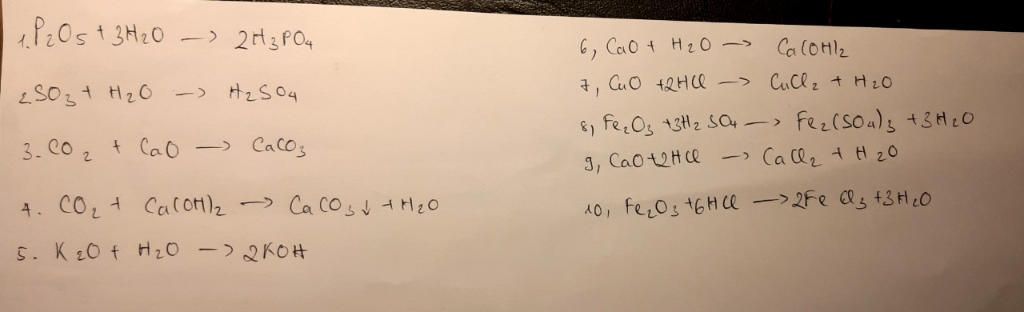 1. P2O5 + 3H2O —> 2H3PO4
2 SO3 + H2O —> H2SO4
3. CO2 + CaO —> CaCO3
4. CO2 + Ca(OH)2 —> CaCO3↓ + H2O
5. K2O + H2O —> 2KOH
6, CaO + H2O —> Ca(OH)2
7, CuO +2HCl —> CuCl2 + H2O
8, Fe2O3 +3H2SO4 —> Fe2(SO4)3 +3H2O
9, CaO+2HCl —> CaCl2 + H2O
10, Fe2O3 +6HCl —> 2FeCl3 +3H2O